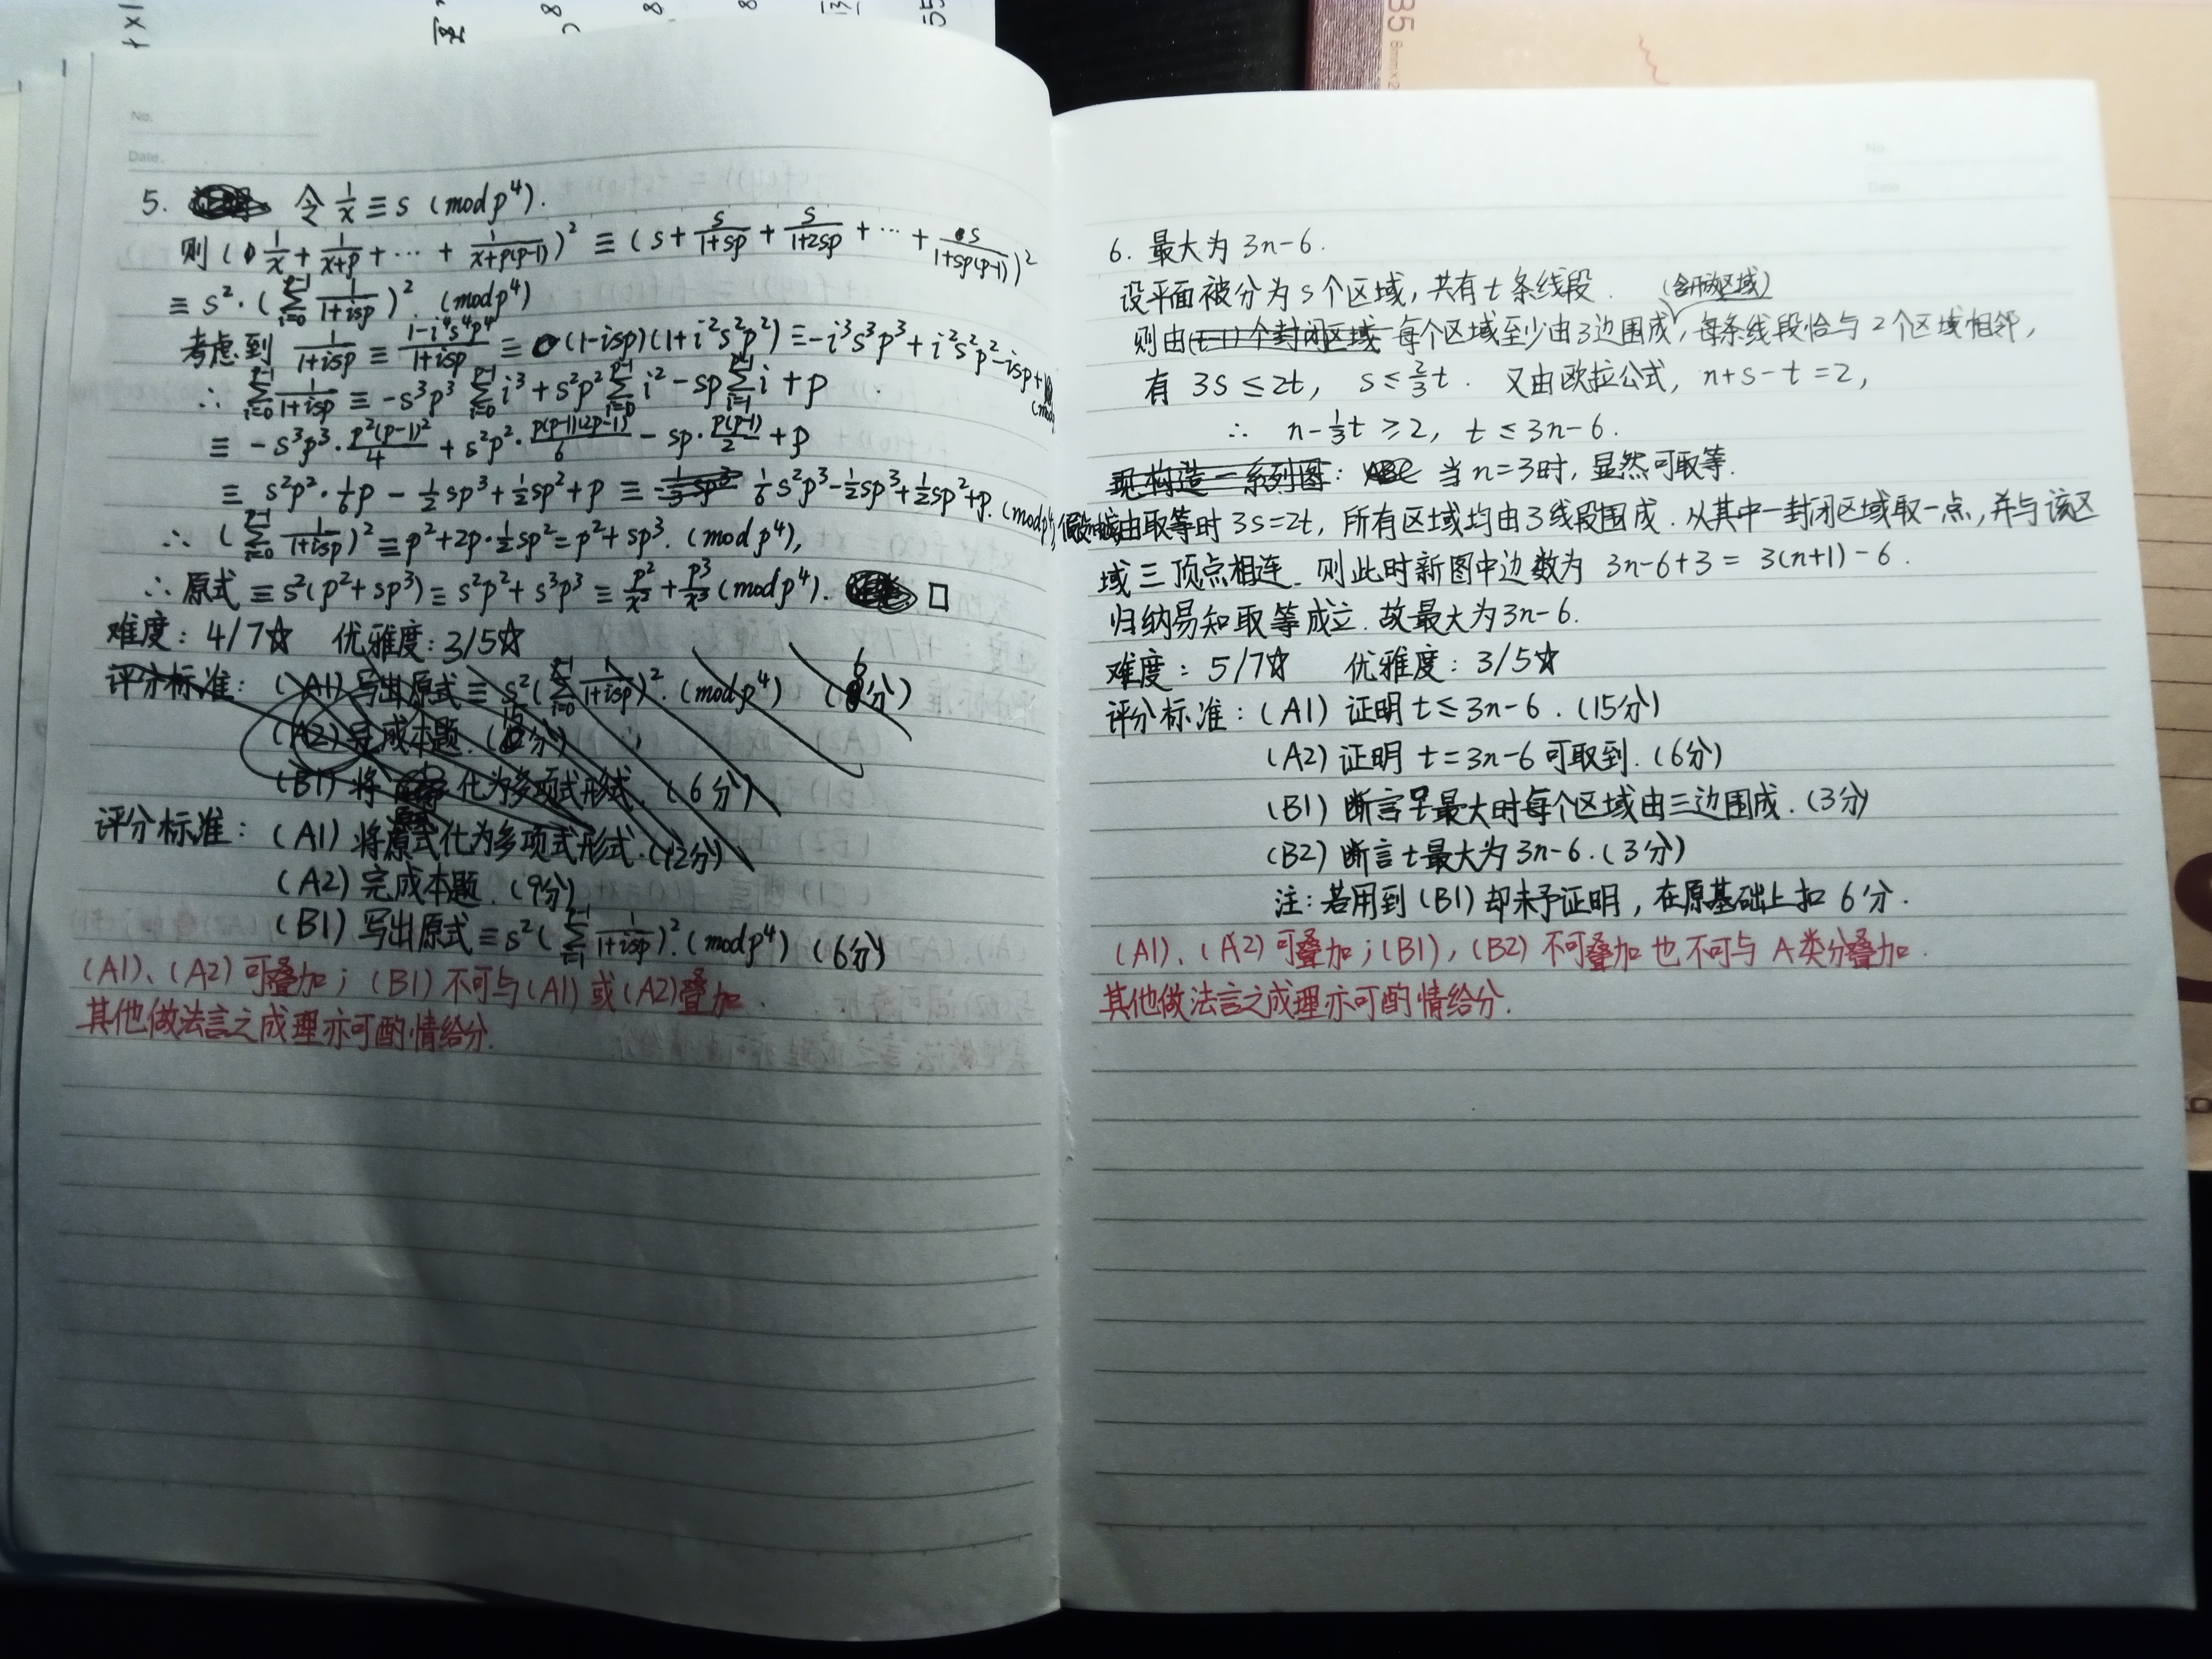 No.
Date.
5. 令 1/x ≡ s (mod p⁴).
则 (1/x + 1/(x+p) + ⋯ + 1/(x+p(p-1)))² ≡ (s + s/(1+sp) + s/(1+2sp) + ⋯ + s/(1+sp(p-1)))²
≡ s²·(∑_{i=0}^{p-1} 1/(1+isp))². (mod p⁴)
考虑到 1/(1+isp) ≡ (1-i⁴s⁴p⁴)/(1+isp) ≡ (1-isp)(1+i²s²p²) ≡ -i³s³p³ + i²s²p² - isp + 1
∴ ∑_{i=0}^{p-1} 1/(1+isp) ≡ -s³p³ ∑_{i=0}^{p-1} i³ + s²p² ∑_{i=0}^{p-1} i² - sp ∑_{i=1}^{p-1} i + p
≡ -s³p³·p²(p-1)²/4 + s²p²·p(p-1)(2p-1)/6 - sp·p(p-1)/2 + p
≡ s²p²·1/6p - 1/2sp³ + 1/2sp² + p ≡ 1/6s²p³ - 1/2sp³ + 1/2sp² + p. (mod p⁴)
∴ (∑_{i=0}^{p-1} 1/(1+isp))² ≡ p² + 2p·1/2sp² = p² + sp³. (mod p⁴),
∴ 原式 ≡ s²(p²+sp³) ≡ s²p² + s³p³ ≡ p²/x² + p³/x³ (mod p⁴). □
难度: 4/7☆ 优雅度: 3/5☆
评分标准: (A1) 写出原式 ≡ s²(∑_{i=0}^{p-1} 1/(1+isp))². (mod p⁴) (6分)
(A2) 完成本题.
(B1) 将 化为多项式形式. (6分)
评分标准: (A1) 将原式化为多项式形式. (12分)
(A2) 完成本题. (9分)
(B1) 写出原式 ≡ s²(∑_{i=1}^{p-1} 1/(1+isp))². (mod p⁴) (6分)
(A1)、(A2) 可叠加; (B1) 不可与(A1) 或 (A2)叠加.
其他做法言之成理亦可酌情给分.
No.
Date.
6. 最大为 3n-6.
设平面被分为 s 个区域, 共有 t 条线段.
则由 每个区域至少由3边围成, 每条线段恰与 2 个区域相邻,
有 3s ≤ 2t, s ≤ 2/3 t. 又由欧拉公式, n+s-t=2,
∴ n-1/3t ≥ 2, t ≤ 3n-6.
现构造一系列图: 当 n=3时, 显然可取等.
由取等时 3s=2t, 所有区域均由 3线段围成. 从其中一封闭区域取一点, 并与该区
域三顶点相连. 则此时新图中边数为 3n-6+3 = 3(n+1)-6.
归纳易知取等成立. 故最大为3n-6.
难度: 5/7☆ 优雅度: 3/5☆
评分标准: (A1) 证明 t≤3n-6. (15分)
(A2) 证明 t=3n-6 可取到. (6分)
(B1) 断言 最大时每个区域由三边围成. (3分)
(B2) 断言 t 最大为 3n-6. (3分)
注: 若用到 (B1) 却未予证明, 在原基础上扣 6 分.
(A1)、(A2) 可叠加; (B1), (B2) 不可叠加也不可与 A类分叠加.
其他做法言之成理亦可酌情给分.